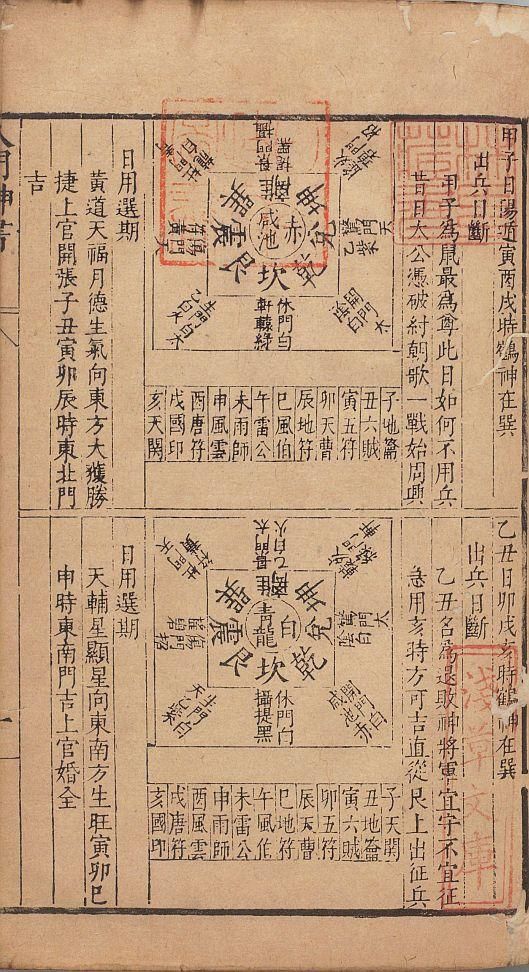 甲子日陽道寅酉戌時鶴神在巽
出兵日斷
甲子為鼠最為尊此日如何不用兵
昔日太公憑破紂朝歌一戰始周興
離
坤
兌
乾
坎
艮
震
巽
咸池
赤
驚門天
乙紫
休門白
軒轅綠
開門太
生門白
傷門
子地籥
丑六賊
寅五符
卯天曹
辰地符
巳風伯
午雷公
未雨師
申風雲
酉唐符
戌國印
亥天關
日用選期
黃道天福月德生氣向東方大獲勝
捷上官開張子丑寅卯辰時東北門
吉
乙丑日卯戌亥時鶴神在巽
出兵日斷
乙丑名為退敗神將軍宜守不宜征
急用亥時方可吉直從艮上出征兵
離
坤
兌
乾
坎
艮
震
巽
青龍
白
景門太
乙白火
驚門太
陰白
開門白
咸池赤
休門白
攝提黑
生門白
傷門招
子天關
丑地籥
寅六賊
卯五符
辰天曹
巳地符
午風伯
未雷公
申雨師
酉風雲
戌唐符
亥國印
日用選期
天輔星顯星向東南方生旺寅卯巳
申時東南門吉上官婚全
淺草文庫